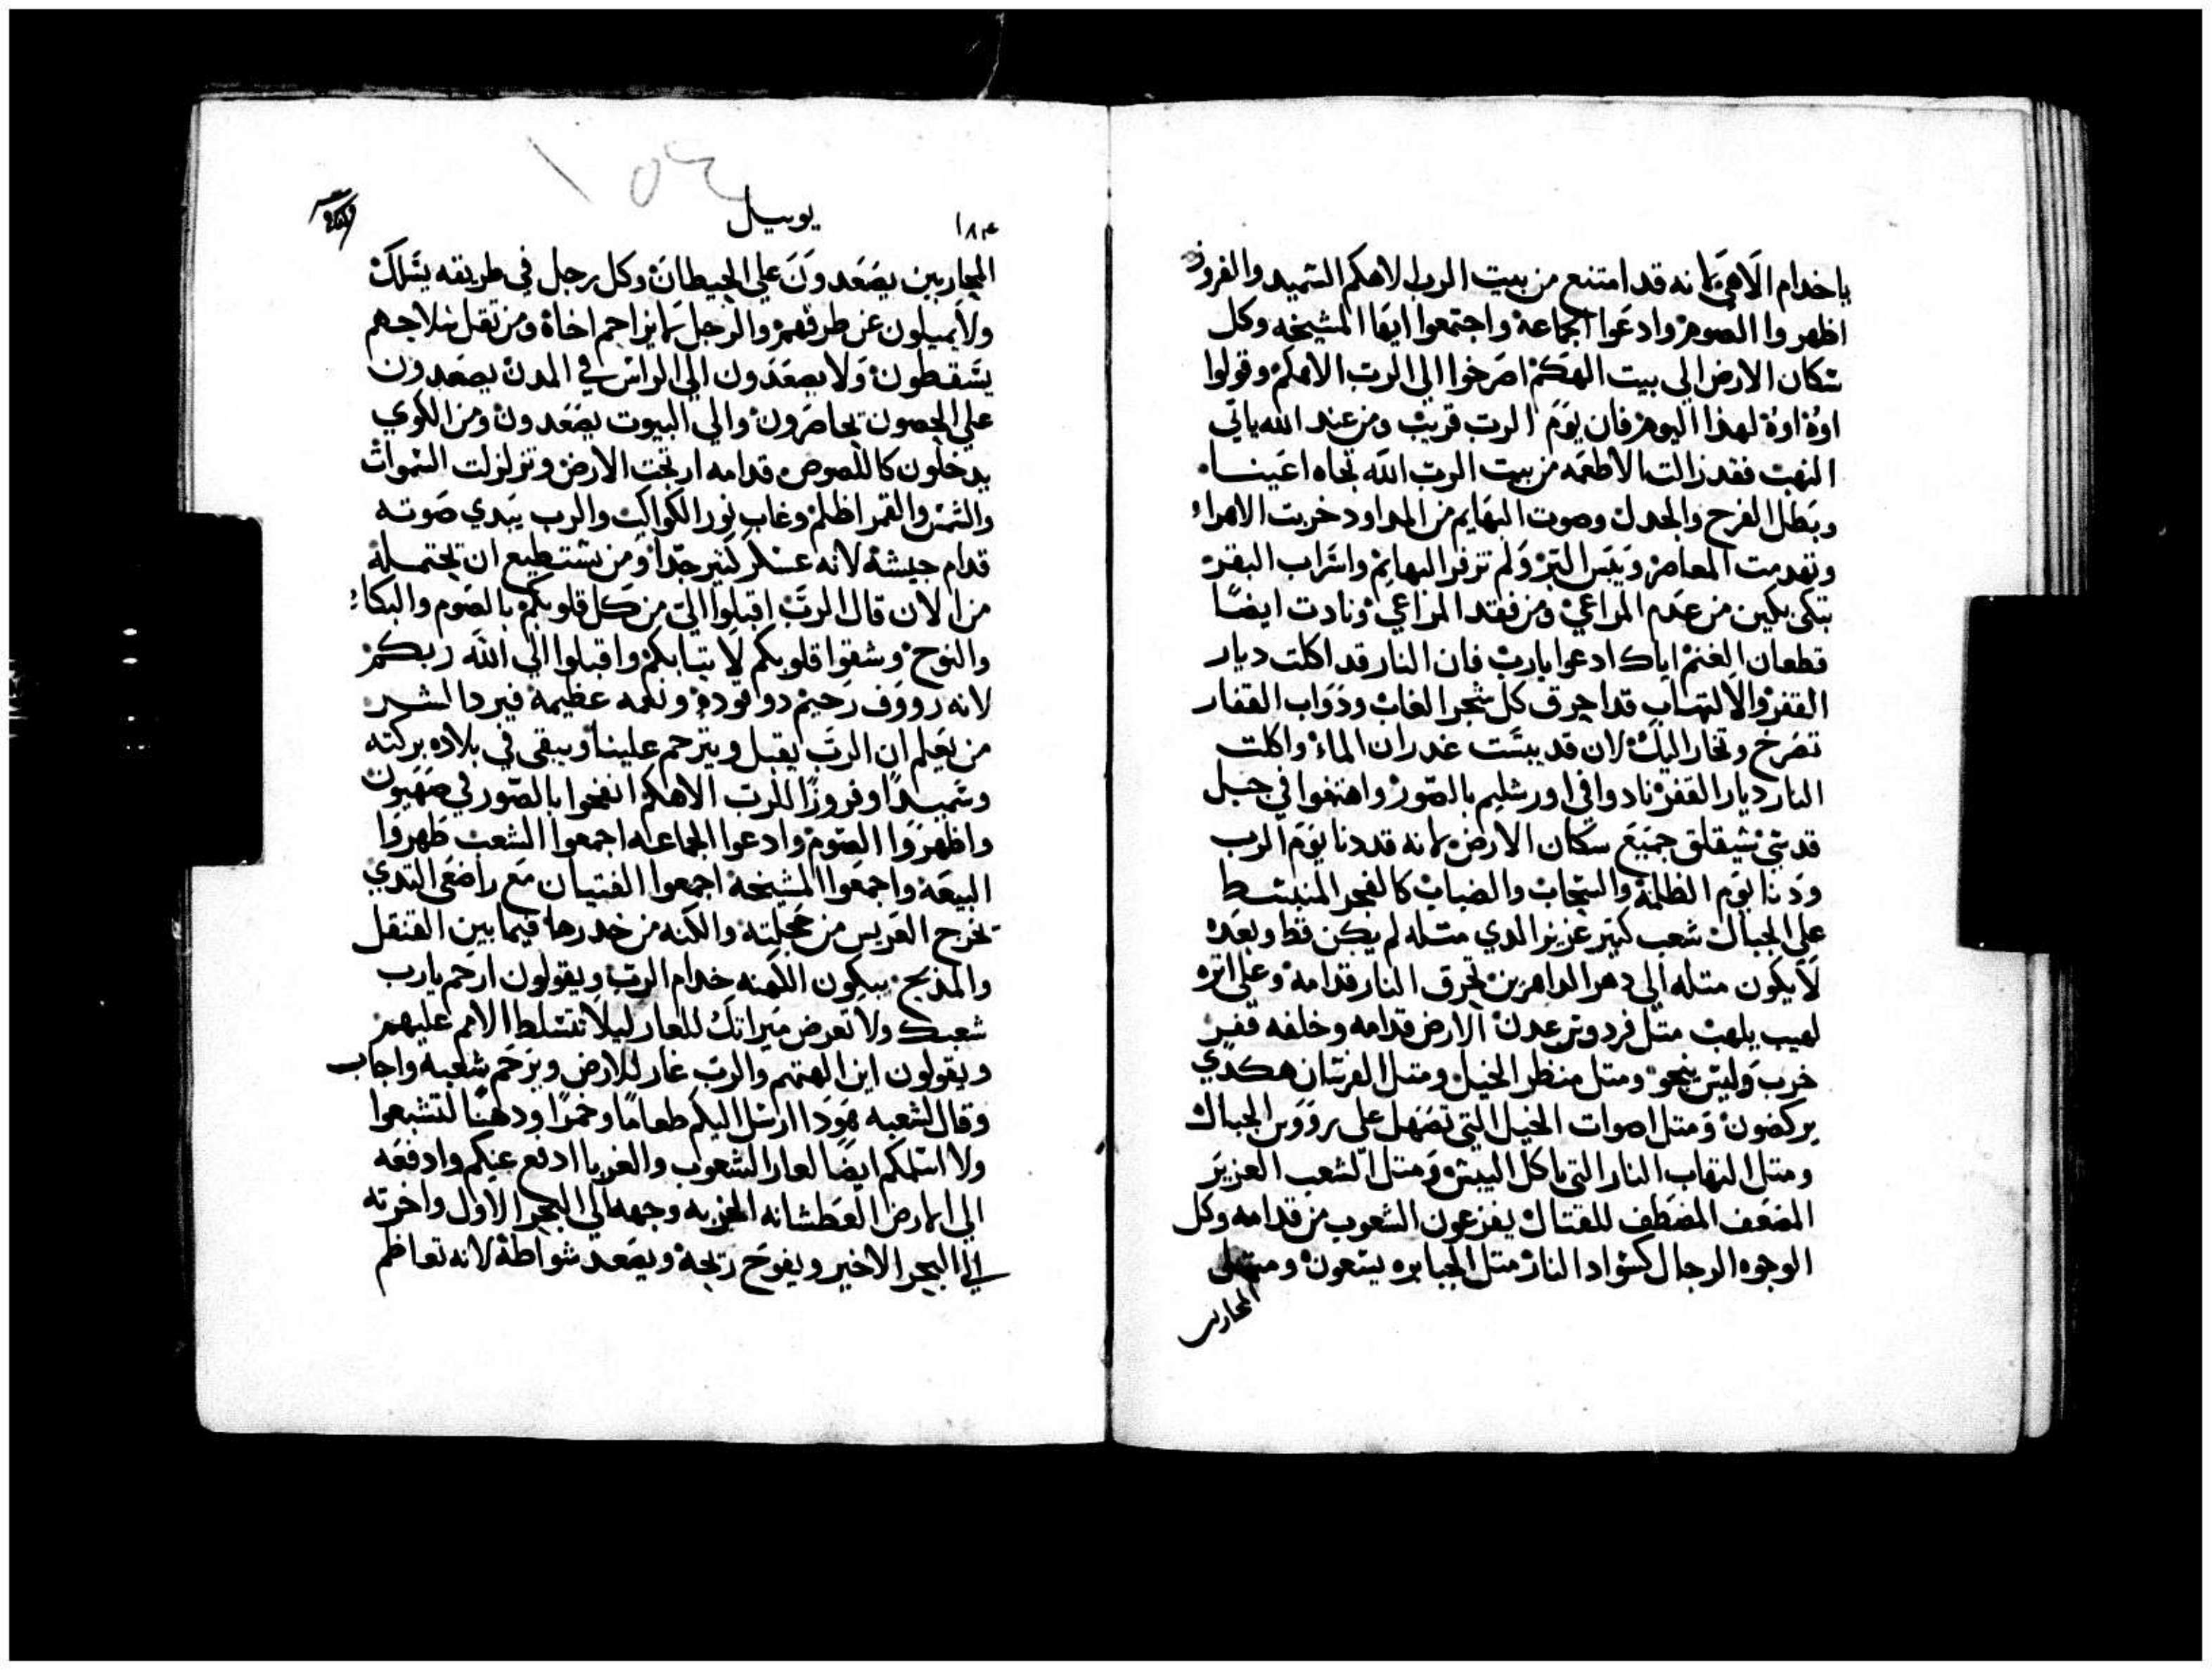 ياخدام الاهي لانه قد امتنع من بيت الرب الاهكم السميد والفروز
اظهروا الصوم وادعوا الجماعة واجتمعوا ايها المشيخه وكل
سكان الارض الي بيت الهكم اصرخوا الي الرب الاهكم وقولوا
اوه اوه لهذا اليوم فان يوم الرب قريب ومن عند الله ياتي
النهب فقد زالت الاطعمه من بيت الرب الله تجاه اعيننا
وبطل الفرح والجدل وصوت البهايم من المداود خربت الاهراء
وتهدمت المعاصر ويبس البر ولم تزفر البهايم واسراب البقر
تبكي بكين من عدم المراعي ومن فقد المراعي ونادت ايضا
قطعان الغنم اياك ادعوا يارب فان النار قد اكلت ديار
القفر والالتهاب قد احرق كل شجر الغاب ودواب القفار
تصرخ وتخار اليك لان قد يبست غدران الماء واكلت
النار ديار القفر نادوا في اورشليم بالصور واهتفوا في جبل
قدسي سيقلق جميع سكان الارض لانه قد دنا يوم الرب
ودنا يوم الظلمة والسحاب والضباب كالفجر المنبسط
علي الجبال شعب كبير عزيز الدي متله لم يكن قط وبعده
لايكون متله الي دهر الداهرين تحرق النار قدامه وعلي اتره
لهيب يلهب متل فردوس عدن الارض قدامه وخلفه قفر
خرب وليس ينجو ومتل منظر الخيل ومتل الفرسان هكدي
يركضون ومتل اصوات الخيل التي تصهل علي رووس الجبال
ومتل التهاب النار التي تاكل اليبس ومتل الشعب العزيز
المضعف المصطف للقتال يفزعون الشعوب من قدامه وكل
الوجوه الرجال كسواد النار متل الجبابره يسعون ومتل
المحاربين
يوييل
١٨٣
المحاربين يصعدون علي الحيطان وكل رجل في طريقه يسلك
ولا يميلون عن طرقهم والرجل لا يزاحم اخاه ومن تقل سلاحهم
يسقطون ولا يصعدون الي الراس في المدن يصعدون
علي الحصون يحاصرون والي البيوت يصعدون ومن الكوي
يدخلون كاللصوص قدامه ارتجت الارض وتزلزلت السموات
والشمس والقمر اظلم وغاب نور الكواكب والرب يبدي صوته
قدام جيشه لانه عسكر كثير جدا ومن يستطيع ان يحتمله
من الان قال الرب اقبلوا الي من كل قلوبكم بالصوم والبكاء
والنوح وشقوا قلوبكم لا تيابكم واقبلوا الي الله ربكم
لانه رووف رحيم دو تودة ونعمه عظيمة فيرد الشر
من يعلم ان الرب يقبل ويترحم علينا ويبقي في بلاده بركته
وسميدا وفروزا للرب الاهكم انفخوا بالصور في صهيون
واظهروا الصوم وادعوا الجماعه اجمعوا الشعب طهروا
البيعة واجمعوا المشيخة اجمعوا الفتيان مع راضعي التدي
يخرج العريس من حجلته والكنه من خدرها فيما بين القنقل
والمدبح يبكون الكهنه خدام الرب ويقولون ارحم يارب
شعبك ولا تعرض ميراتك للعار ليلا تتسلط الامم عليهم
ويقولون اين الهتهم والرب غار للارض وترحم شعبه واجاب
وقال لشعبه هودا ارسل اليكم طعاما وخمرا ودهنا لتشبعوا
ولا اسلمكم ايضا لعار الشعوب والغربا ادفع عنكم وادفعه
الي الارض العطشانه الخربه وجهه الي البحر الاول واخرته
الي البحر الاخير ويفوح ريحه ويصعد شواظه لانه تعاظم